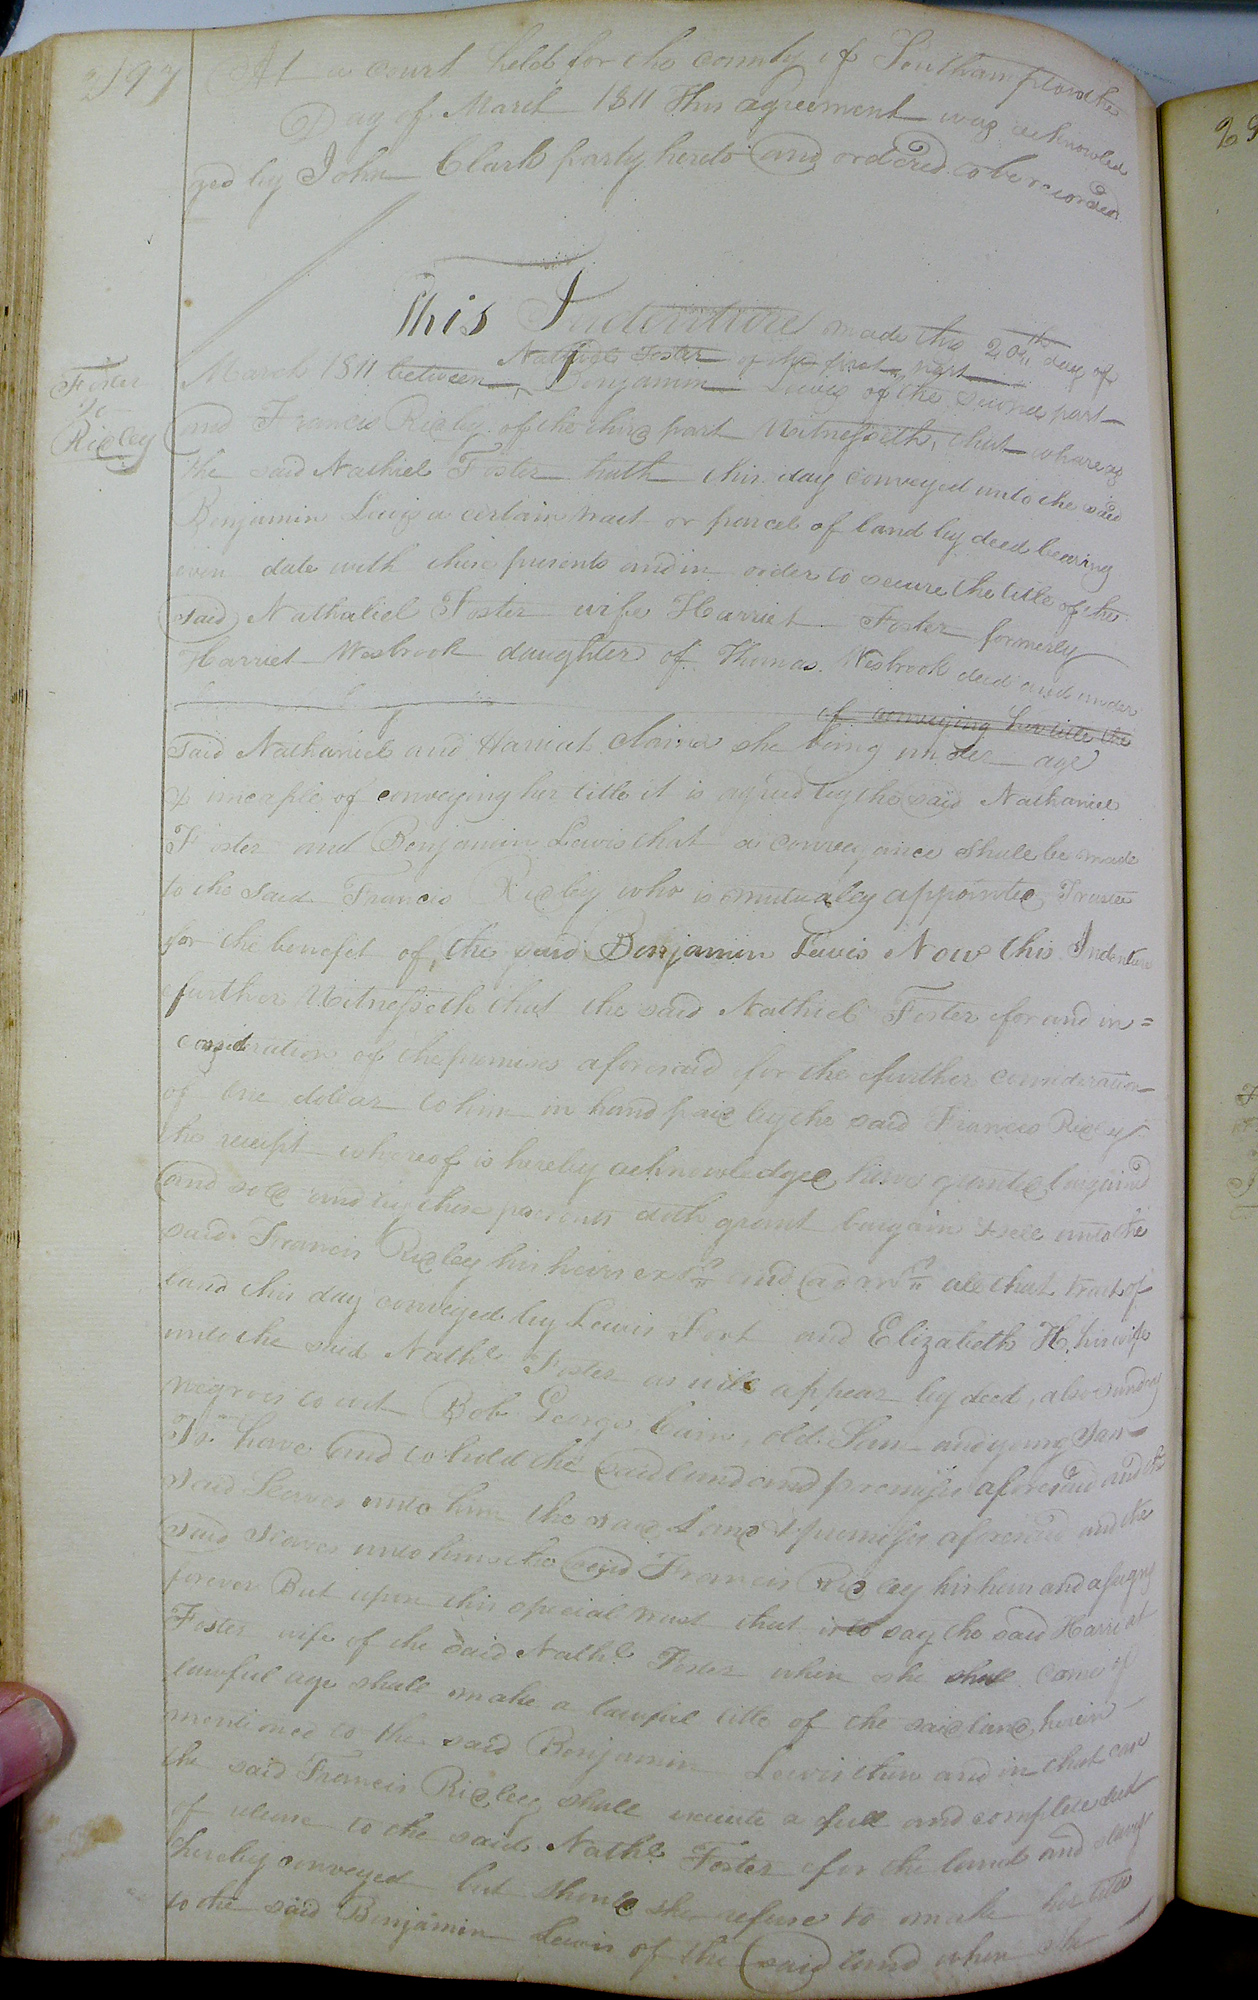 297
At a court held for the county of Southampton the
Day of March 1811 This agreement was acknowled
ged by John Clark party hereto and ordered to be recorded
This Indenture made this 20th day of
Nathiel Foster of the first part
March 1811 between Benjamin Lewis of the second part
Foster
to
Ridley
and Francis Ridley of the third part Witnesseth, that whereas
the said Nathiel Foster hath this day conveyed unto the said
Benjamin Lewis a certain tract or parcel of land by deed bearing
even date with these presents and in order to secure the title of the
said Nathaliel Foster wife Harriet Foster formerly
Harriet Wesbrook daughter of Thomas Wesbrook decd and under
of conveying her title the
said Nathaniel and Harriet claims she being under age
& uncaple of conveying her title it is agreed by the said Nathaniel
Foster and Benjamin Lewis that a conveyance shall be made
to the said Francis Ridley who is mutualey appointed Trustee
for the benefit of the said Benjamin Lewis Now this Indenture
further Witnesseth that the said Nathiel Foster for and in=
consideration of the premises aforesaid for the further consideration
of one dollar to him in hand paid by the said Francis Ridley
the receipt whereof is hereby acknowledged have granted bargained
and sold and by these presents doth grant bargain & sell unto the
said Francis Ridley his heirs exrs and admrs all that tract of
land this day conveyed by Lewis Fort and Elizabeth H. his wife
unto the said Nathl Foster as will appear by deed, also sundry
negroes to wit Bob George, Cain, old Sam and young Sam
To have and to hold the said land and premises aforesaid and the
said Slaves unto him the said Land & premises aforesaid and the
said Slaves unto him the said Francis Ridley his heirs and assigns
forever But upon this special trust that is to say the said Harriet
Foster wife of the said Nathl Foster when she shall come of
lawful age shall make a lawful title of the said land herein
mentioned to the said Benjamin Lewis then and in that case
the said Francis Ridley shall execute a full and complete deed
of release to the said Nathl Foster for the land and slaves
hereby conveyed but should she refuse to make her title
to the said Benjamin Lewis of the said land when she